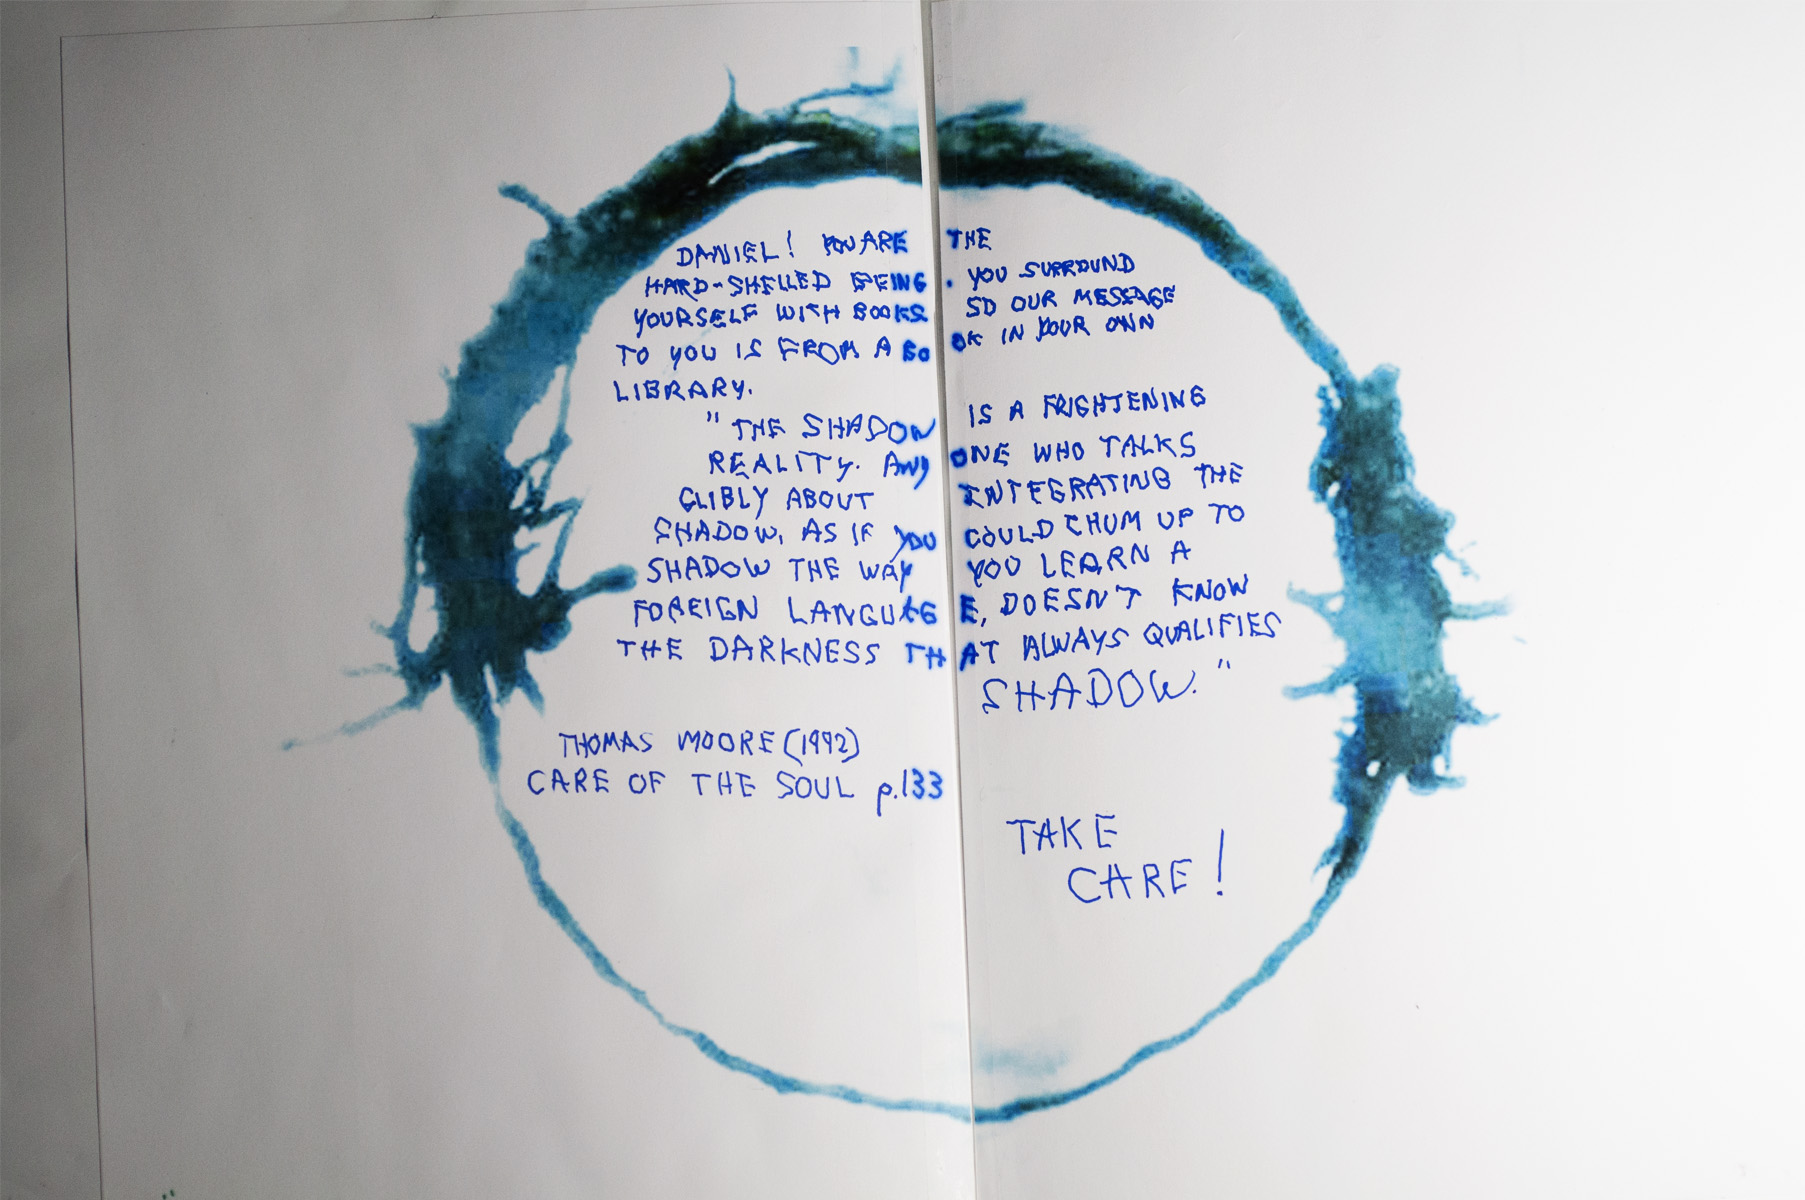 DANIEL! YOU ARE THE
HARD-SHELLED BEING. YOU SURROUND
YOURSELF WITH BOOKS SO OUR MESSAGE
TO YOU IS FROM A BOOK IN YOUR OWN
LIBRARY.
"THE SHADOW IS A FRIGHTENING
REALITY. ANYONE WHO TALKS
GLIBLY ABOUT INTEGRATING THE
SHADOW, AS IF YOU COULD CHUM UP TO
SHADOW THE WAY YOU LEARN A
FOREIGN LANGUAGE, DOESN'T KNOW
THE DARKNESS THAT ALWAYS QUALIFIES
SHADOW."
THOMAS MOORE (1992)
CARE OF THE SOUL p.133
TAKE
CARE!